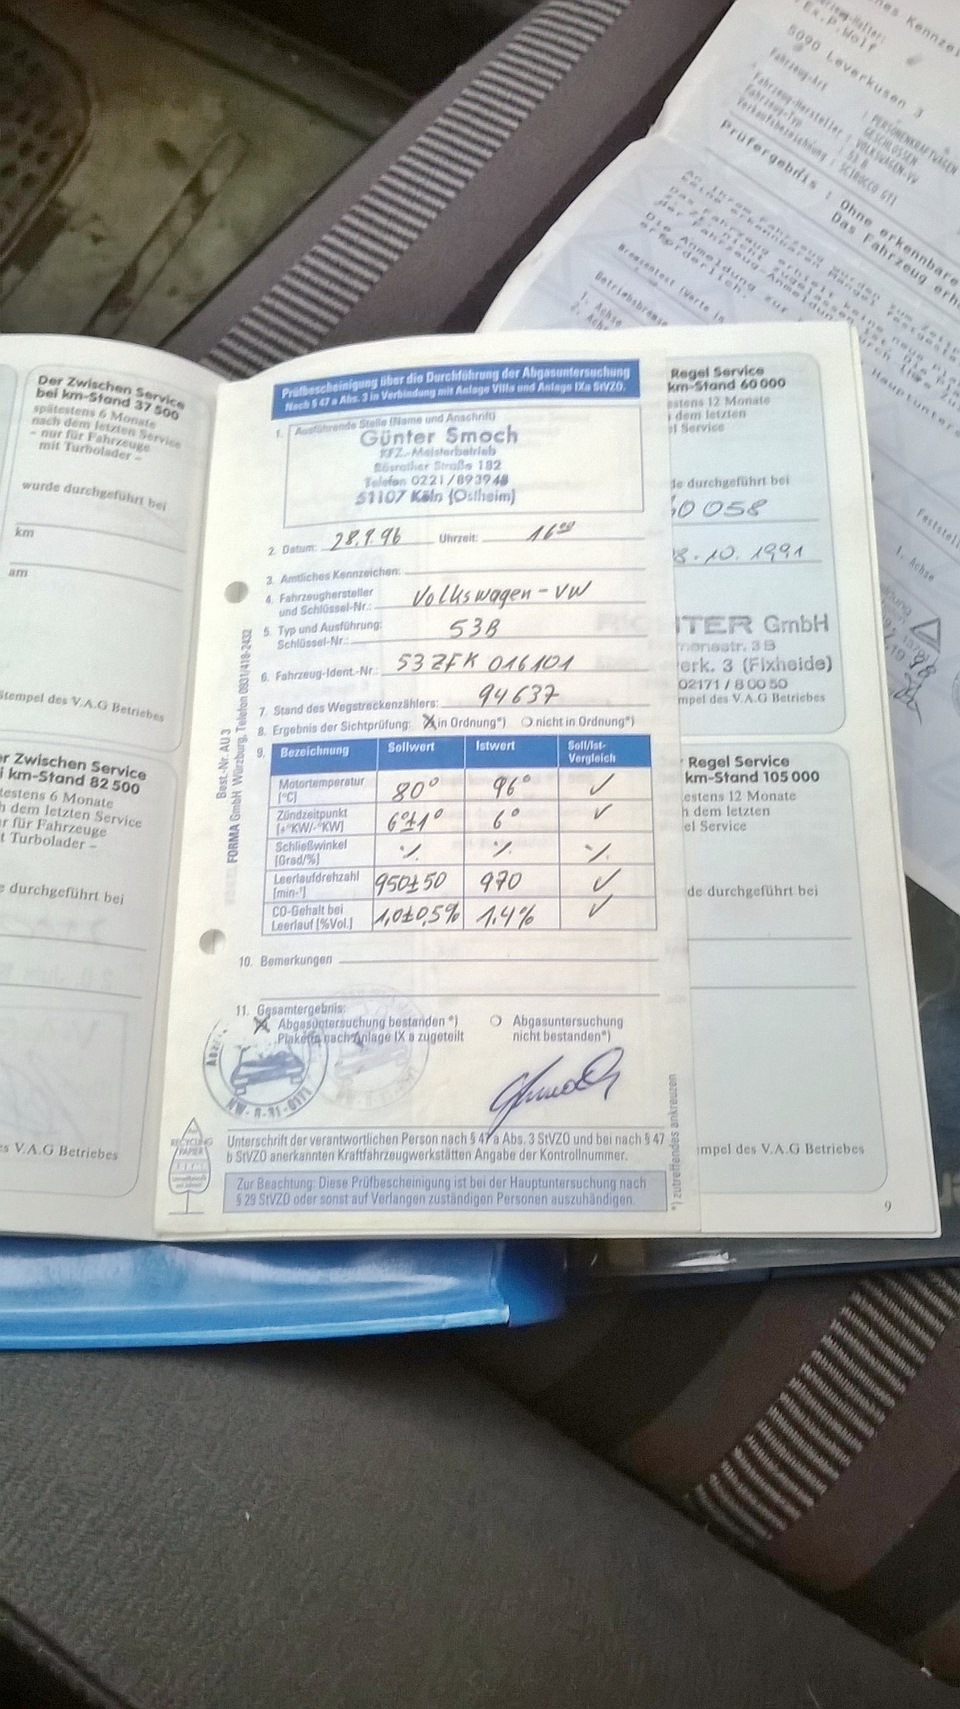 Der Zwischen Service
bei km-Stand 37 500
spätestens 6 Monate
nach dem letzten Service
– nur für Fahrzeuge
mit Turbolader –
wurde durchgeführt bei
km
am
Stempel des V.A.G Betriebes
r Zwischen Service
i km-Stand 82 500
testens 6 Monate
h dem letzten Service
r für Fahrzeuge
t Turbolader –
e durchgeführt bei
es V.A.G Betriebes
Prüfbescheinigung über die Durchführung der Abgasuntersuchung
Nach § 47 a Abs. 3 in Verbindung mit Anlage VIIIa und Anlage IXa StVZO.
1. Ausführende Stelle (Name und Anschrift)
Günter Smoch
KFZ.-Meisterbetrieb
Rösrather Straße 182
Telefon 0221/893948
51107 Köln (Ostheim)
2. Datum: 28.9.96 Uhrzeit: 16⁰⁰
3. Amtliches Kennzeichen:
4. Fahrzeughersteller Volkswagen - VW
und Schlüssel-Nr.:
5. Typ und Ausführung: 53B
Schlüssel-Nr.:
6. Fahrzeug-Ident.-Nr.: 53ZFK 016101
7. Stand des Wegstreckenzählers: 94637
8. Ergebnis der Sichtprüfung: X in Ordnung*) nicht in Ordnung*)
9. Bezeichnung Sollwert Istwert Soll/Ist-
Vergleich
Motortemperatur 80° 96° ✓
[°C]
Zündzeitpunkt 6°±1° 6° ✓
[+°KW/-°KW]
Schließwinkel ٪ ٪ ٪
[Grad/%]
Leerlaufdrehzahl 950±50 970 ✓
[min-¹]
CO-Gehalt bei 1,0±0,5% 1.4% ✓
Leerlauf [%Vol.]
10. Bemerkungen
11. Gesamtergebnis:
X Abgasuntersuchung bestanden*) Abgasuntersuchung
Plakette nach Anlage IX a zugeteilt nicht bestanden*)
Unterschrift der verantwortlichen Person nach § 47 a Abs. 3 StVZO und bei nach § 47
b StVZO anerkannten Kraftfahrzeugwerkstätten Angabe der Kontrollnummer.
Zur Beachtung: Diese Prüfbescheinigung ist bei der Hauptuntersuchung nach
§ 29 StVZO oder sonst auf Verlangen zuständigen Personen auszuhändigen.
Best.-Nr. AU 3
FORMA GmbH Würzburg, Telefon 0931/418-2432
*) zutreffendes ankreuzen
RECYCLING
PAPIER
Regel Service
km-Stand 60 000
estens 12 Monate
dem letzten
el Service
de durchgeführt bei
60 058
8.10.1991
RICHTER GmbH
erk. 3 (Fixheide)
02171 / 8 00 50
mpel des V.A.G Betriebes
Regel Service
km-Stand 105 000
estens 12 Monate
h dem letzten
el Service
de durchgeführt bei
mpel des V.A.G Betriebes
9
Ex.P.Wolf
5090 Leverkusen 3
Fahrzeug-Art : PERSONENKRAFTWAGEN
GESCHLOSSEN
Fahrzeug-Hersteller : VOLKSWAGEN-VW
Fahrzeug-Typ : 53 B
Verkaufsbezeichnung : SCIROCCO GTI
Prüfergebnis : Ohne erkennbare
Das Fahrzeug erh
erforderlich.
1. Achse